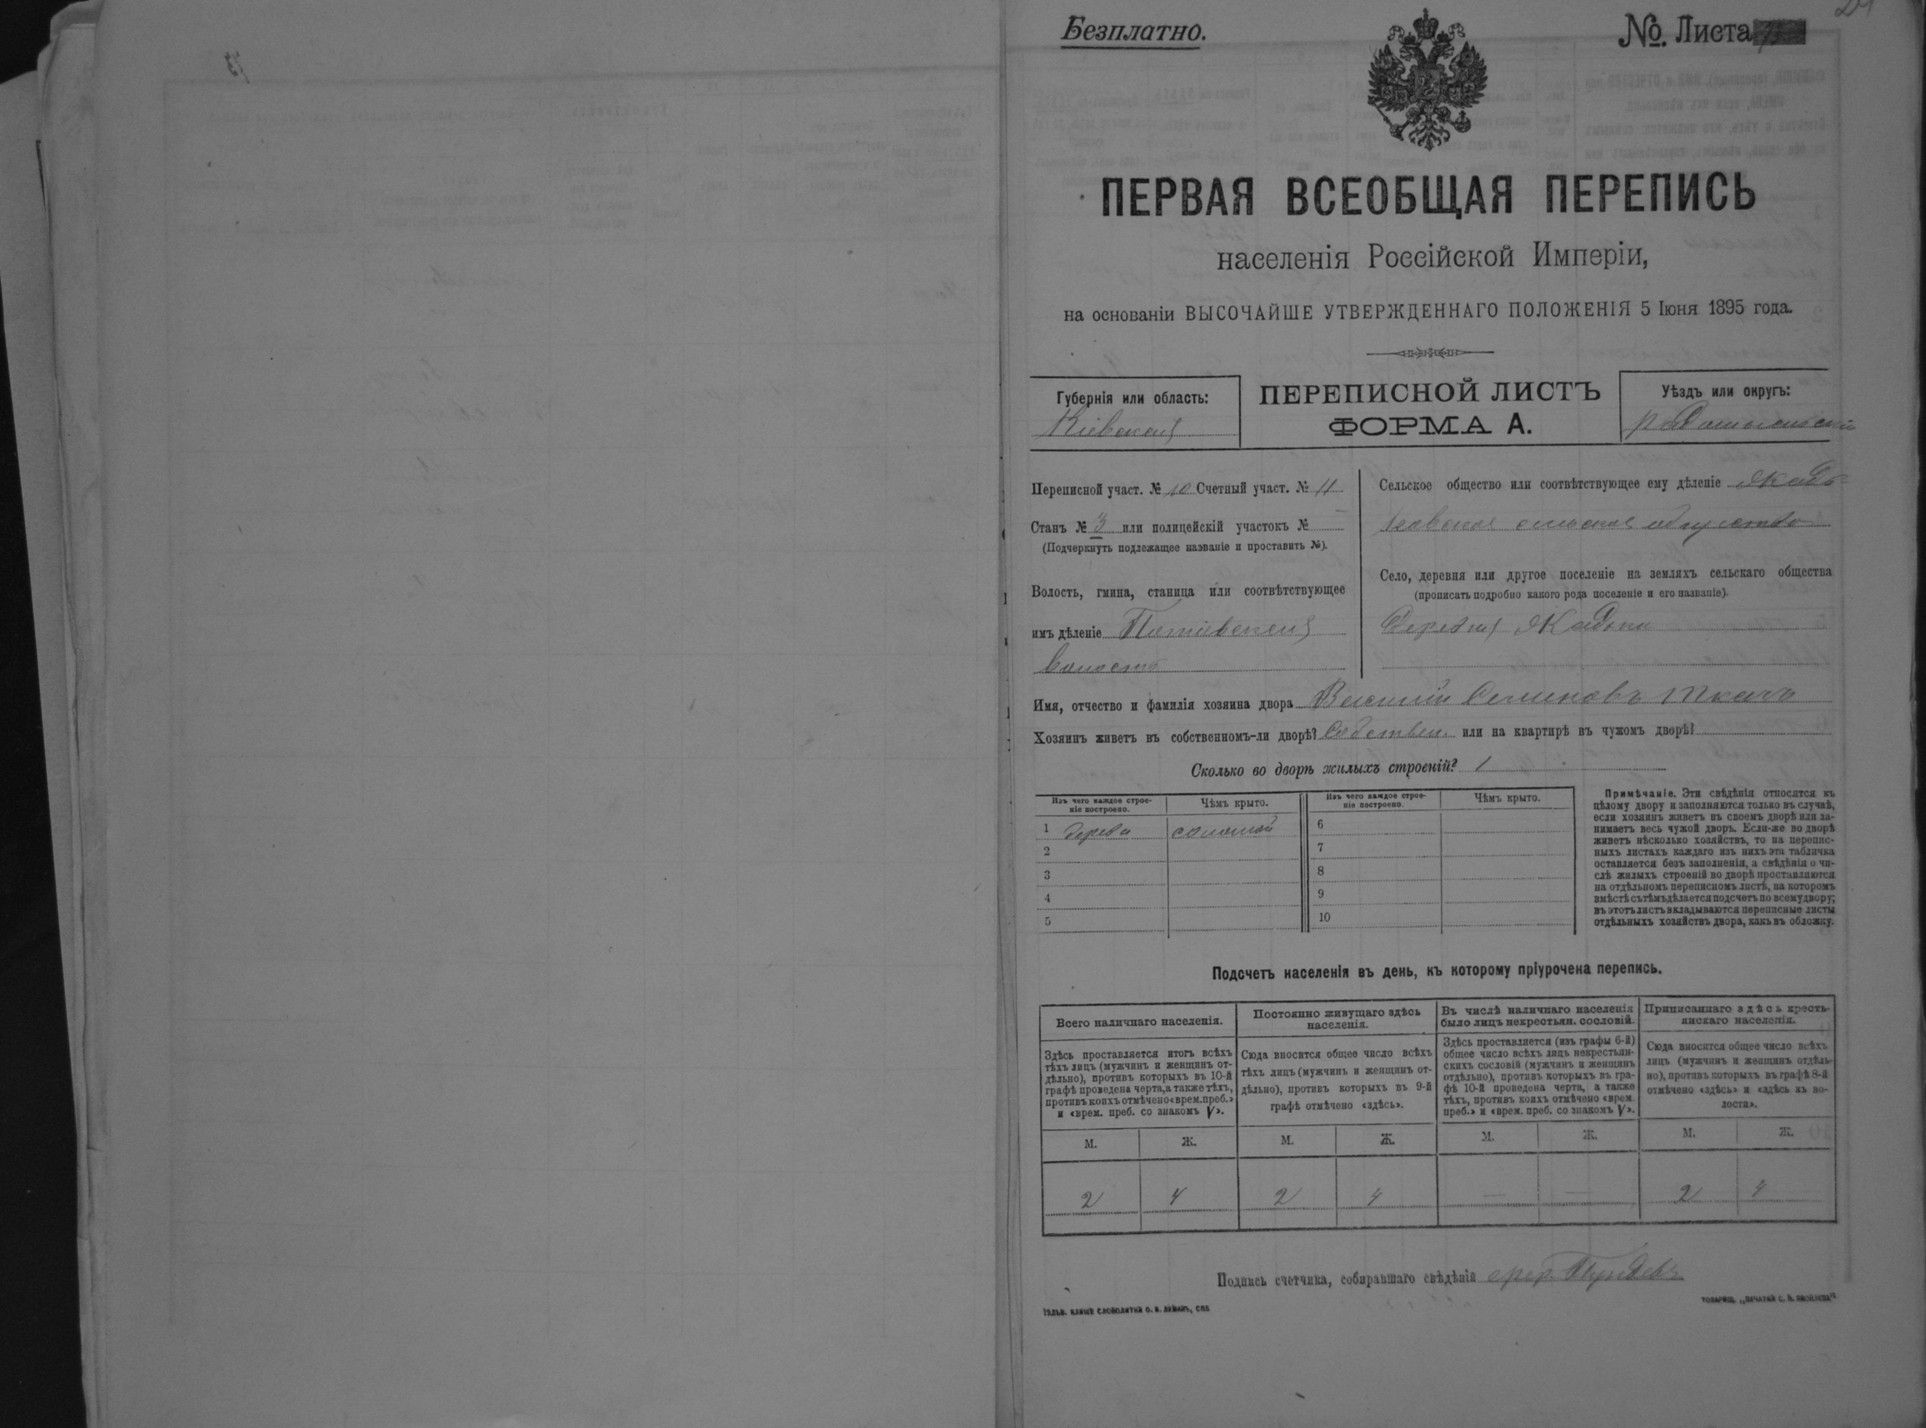 Безплатно.
№. Листа
24
ПЕРВАЯ ВСЕОБЩАЯ ПЕРЕПИСЬ
населенія Россійской Имперіи,
на основаніи ВЫСОЧАЙШЕ УТВЕРЖДЕННАГО ПОЛОЖЕНІЯ 5 Іюня 1895 года.
Губернія или область:
Кіевская
ПЕРЕПИСНОЙ ЛИСТЪ
ФОРМА А.
Уѣздъ или округъ:
Радомысльскій
Переписной участ. № 10 Счетный участ. № 11
Станъ № 3 или полицейскій участокъ №
(Подчеркнуть подлежащее названіе и проставить №).
Волость, гмина, станица или соотвѣтствующее
имъ дѣленіе
волость
Сельское общество или соотвѣтствующее ему дѣленіе
сельское общество
Село, деревня или другое поселеніе на земляхъ сельскаго общества
(прописать подробно какого рода поселеніе и его названіе).
Деревня
Имя, отчество и фамилія хозяина двора Василій Семеновъ Ткачъ
Хозяинъ живетъ въ собственномъ-ли дворѣ? Собствен. или на квартирѣ въ чужомъ дворѣ?
Сколько во дворѣ жилыхъ строеній? 1
Изъ чего каждое строе-
ніе построено.
Чѣмъ крыто.
Изъ чего каждое строе-
ніе построено.
Чѣмъ крыто.
1 дерева соломой
2
3
4
5
6
7
8
9
10
Примѣчаніе. Эти свѣдѣнія относятся къ
цѣлому двору и заполняются только въ случаѣ,
если хозяинъ живетъ въ своемъ дворѣ или за-
нимаетъ весь чужой дворъ. Если-же во дворѣ
живетъ нѣсколько хозяйствъ, то на перепис-
ныхъ листахъ каждаго изъ нихъ эта табличка
оставляется безъ заполненія, а свѣдѣнія о чи-
слѣ жилыхъ строеній во дворѣ проставляются
на отдѣльномъ переписномъ листѣ, на которомъ
вмѣстѣ съ тѣмъ дѣлается подсчетъ по всему двору;
въ этотъ листъ вкладываются переписные листы
отдѣльныхъ хозяйствъ двора, какъ въ обложку.
Подсчетъ населенія въ день, къ которому пріурочена перепись.
Всего наличнаго населенія.
Здѣсь проставляется итогъ всѣхъ
тѣхъ лицъ (мужчинъ и женщинъ от-
дѣльно), противъ которыхъ въ 10-й
графѣ проведена черта, а также тѣхъ,
противъ коихъ отмѣчено «врем. преб.»
и «врем. преб. со знакомъ V».
Постоянно живущаго здѣсь
населенія.
Сюда вносится общее число всѣхъ
тѣхъ лицъ (мужчинъ и женщинъ от-
дѣльно), противъ которыхъ въ 9-й
графѣ отмѣчено «здѣсь».
Въ числѣ наличнаго населенія
было лицъ некрестьян. сословій.
Здѣсь проставляется (изъ графы 6-й)
общее число всѣхъ лицъ некрестьян-
скихъ сословій (мужчинъ и женщинъ
отдѣльно), противъ которыхъ въ гра-
фѣ 10-й проведена черта, а также
тѣхъ, противъ коихъ отмѣчено «врем.
преб.» и «врем. преб. со знакомъ V».
Приписаннаго здѣсь кресть-
янскаго населенія.
Сюда вносится общее число всѣхъ
лицъ (мужчинъ и женщинъ отдѣль-
но), противъ которыхъ въ графѣ 8-й
отмѣчено «здѣсь» и «здѣсь къ во-
лости».
М. Ж. М. Ж. М. Ж. М. Ж.
2 4 2 4 — — 2 4
Подпись счетчика, собиравшаго свѣдѣнія